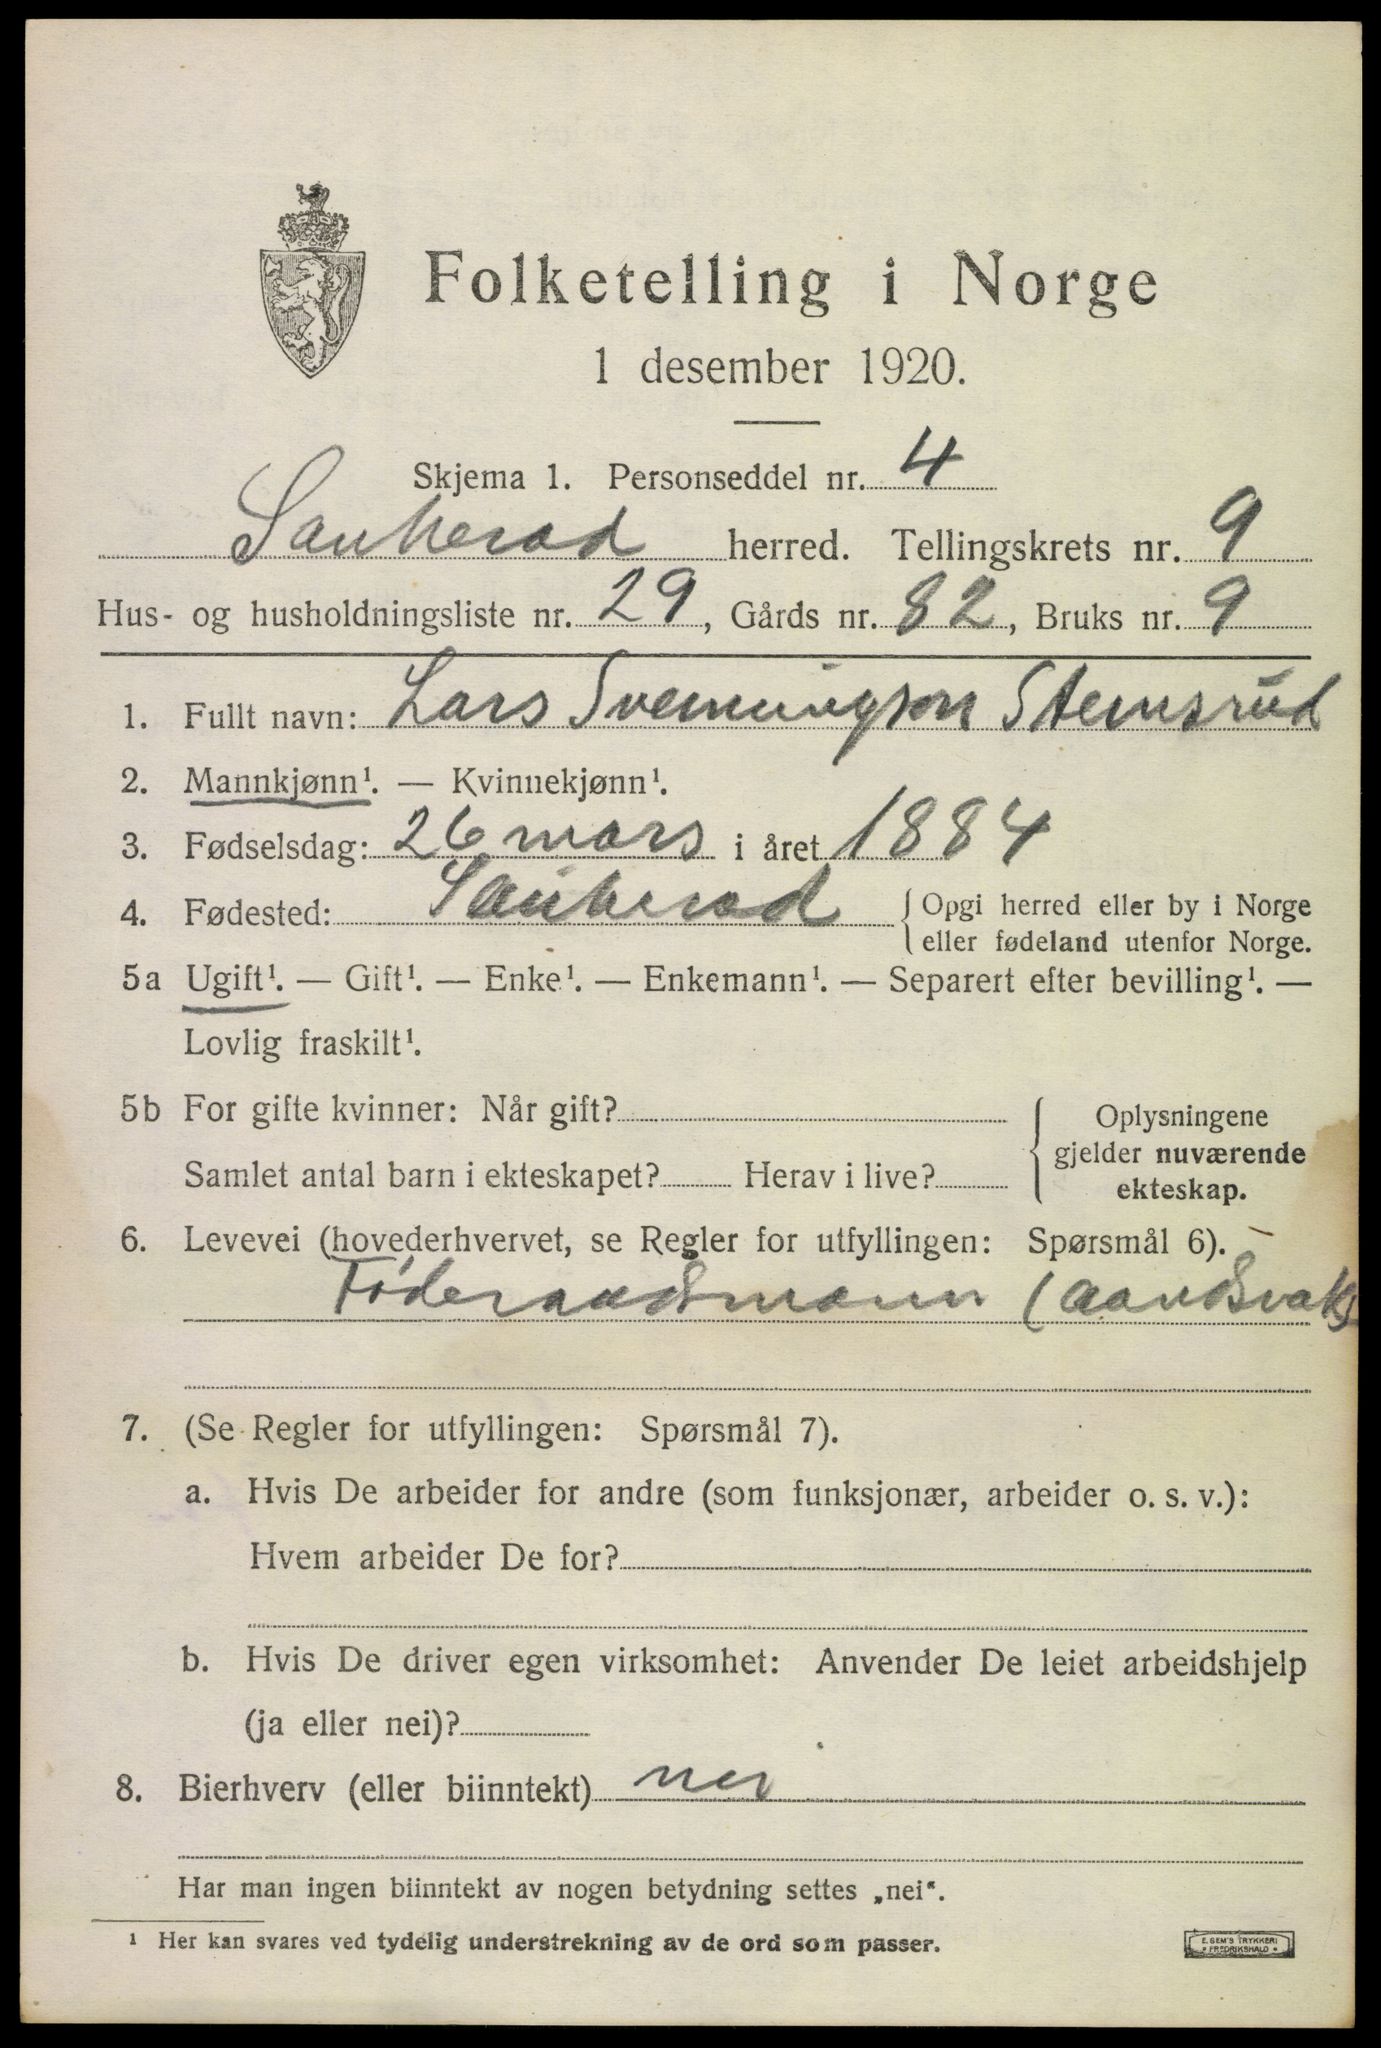 Folketelling i Norge
1 desember 1920.
Skjema 1. Personseddel nr. 4
Sauherad herred. Tellingskrets nr. 9
Hus- og husholdningsliste nr. 29, Gårds nr. 82, Bruks nr. 9
1. Fullt navn: Lars Svenningson Stemsrud
2. Mannkjønn¹. — Kvinnekjønn¹.
3. Fødselsdag: 26 mars i året 1884
4. Fødested: Sauherad { Opgi herred eller by i Norge
eller fødeland utenfor Norge.
5a Ugift¹. — Gift¹. — Enke¹. — Enkemann¹. — Separert efter bevilling¹. —
Lovlig fraskilt¹.
5b For gifte kvinner: Når gift? { Oplysningene
gjelder nuværende
Samlet antal barn i ekteskapet? Herav i live?
ekteskap.
6. Levevei (hovederhvervet, se Regler for utfyllingen: Spørsmål 6).
Føderaadsmann (aandsvak)
7. (Se Regler for utfyllingen: Spørsmål 7).
a. Hvis De arbeider for andre (som funksjonær, arbeider o. s. v.):
Hvem arbeider De for?
b. Hvis De driver egen virksomhet: Anvender De leiet arbeidshjelp
(ja eller nei)?
8. Bierhverv (eller biinntekt) nei
Har man ingen biinntekt av nogen betydning settes „nei“.
¹ Her kan svares ved tydelig understrekning av de ord som passer.
E. SEM'S TRYKKERI
• FREDRIKSHALD •